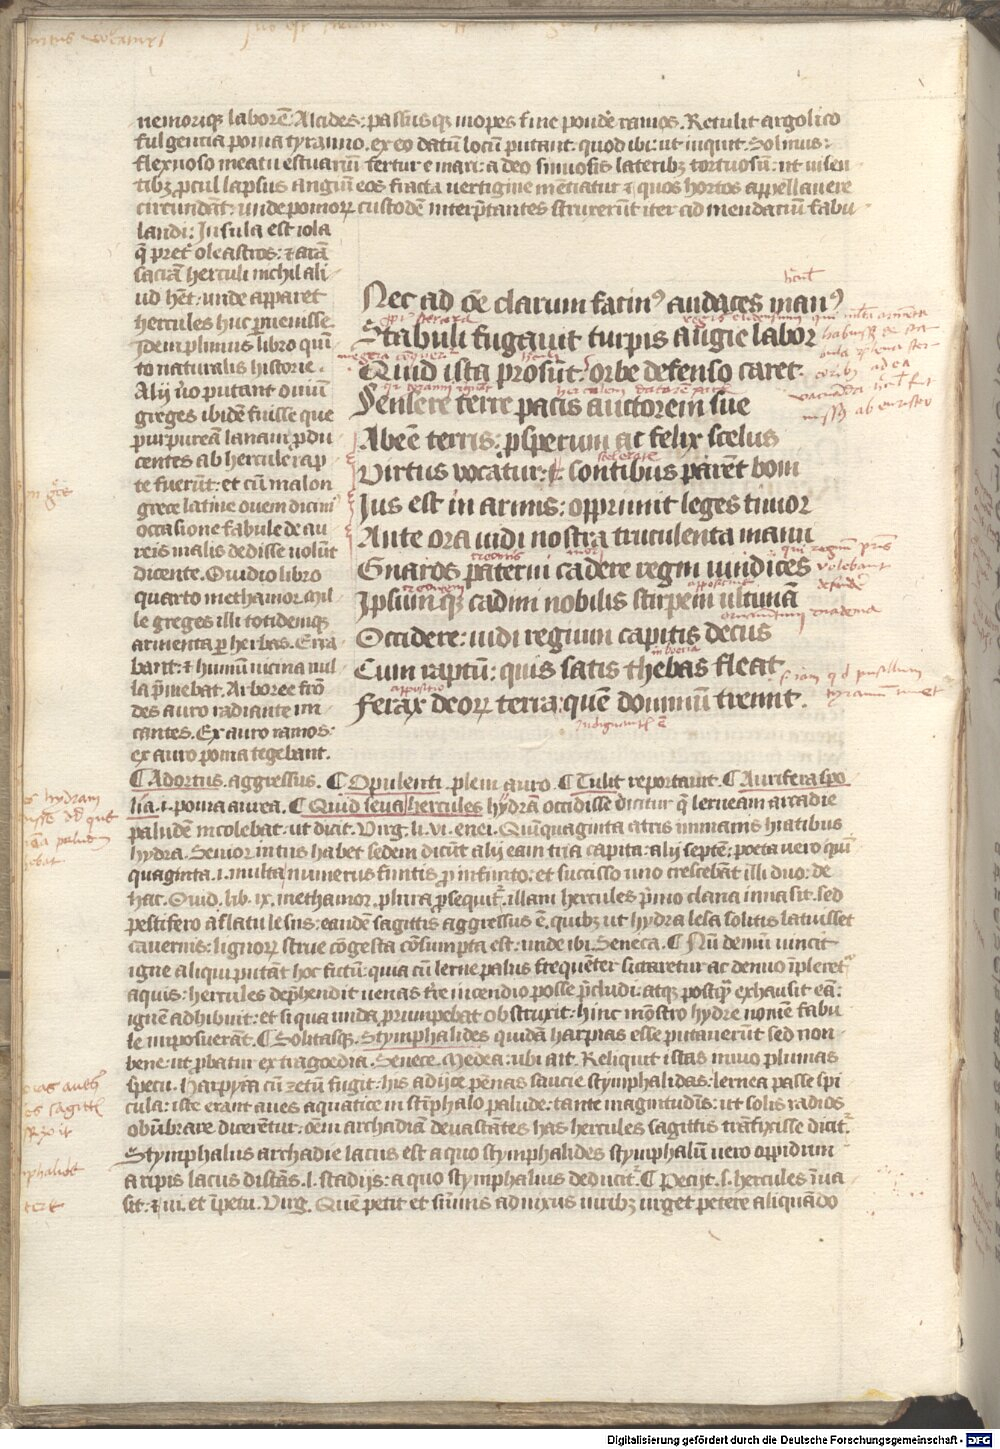 nemoriqꝫ laborē: Alcides: passusqꝫ inopes sine pondē ramos. Retulit argolico
fulgentia poma tyranno. ex eo datū locū putant. quod ibi: ut inquit. Solinus:
flexuoso meatu estuariū fertur e mari: adeo sinuosis lateribꝫ tortuosū: ut uisen
tibꝫ ꝓcul lapsus anguiū eos fracta uertigine mētiatur ⁊ quos hortos appellauere
circundāt: unde pomoꝝ custodē interp̄tantes struxerūt iter ad mendaciū fabu
landi: Insula est iola
q̄ pret̄ oleastros: ⁊ arā
sacrā herculi nichil ali
ud hēt: unde apparet
hercules huc ꝑuenisse
Idem plinius libro quī
to naturalis historie.
Alij u̇o putant ouiū
greges ibidē fuisse que
purpureā lanam ꝓdu
centes ab hercule rap
te fuerūt: et cū malon
grece latine ouem dicim⁹
occasione fabule de au
reis malis dedisse uolūt
dicente. Ouidio libro
quarto methamor. mil
le greges illi totidemqꝫ
armenta ꝑ herbas. Erra
bant: ⁊ humū uicina nul
la p̄mebat. Arboree frō
des auro radiante mi
cantes. Ex auro ramos:
ex auro poma tegebant.
Nec ad oē clarum facin⁹ audaces man⁹
Stabuli fugauit turpis augie labor
Quid ista prosūt: orbe defenso caret.
Sensere terre pacis auctorem sue
Abeē terris: ꝓsperum ac felix scelus
Virtus vocatur: sontibus parēt boni
Ius est in armis: opprimit leges timor
Ante ora uidi nostra truculenta manu
Gnatos paterni cadere regni uindices
Ipsumqꝫ cadmi nobilis stirpem ultimā
Occidere: uidi regium capitis decus
Cum raptū: quis satis thebas fleat
Ferax deoꝝ terra: quē dominū tremit.
¶ Adortus. aggressus. ¶ Opulenti. pleni auro. ¶ Tulit reportauit. ¶ Aurifera spo
lia .i. poma aurea. ¶ Quid seua hercules hydrā occidisse dicitur q̄ lerneam arcadie
paludē incolebat: ut dicit. Virg. li. vi. enei. Quīquaginta atris immanis hiatibus
hydra. Seuior intus habet sedem dicūt alij eam tria capita: alij septē: poeta uero quī
quaginta .i. multa numerus finitis ꝓ infinito: et succisso uno crescebāt illi duo: de
hac. Ouid. lib. ix. methamor. plura ꝓsequit͛. illam hercules p̄mo claua inuasit. sed
pestifero afflatu lesus: eandē sagittis aggressus ē. quibꝫ ut hydra lesa solitis latuisset
cauernis: lignoꝝ strue cōgesta cōsumpta est: unde ibi. Seneca. ¶ Nū demū uincit
igne aliqui putāt hoc fictū: quia cū lerne palus frequēter siccaretur ac denuo īpleret͛
aquis: hercules dep̄hendit uenas tr̄e incendio posse p̄cludi: atqꝫ postꝗ exhausit eā:
ignē adhibuit: et si qua unda prīumpebat obstruxit: hinc mōstro hydre nomē fabu
le imposuerāt. ¶ Solitasqꝫ. Stymphalides quidā harpias esse putauerūt sed non
bene: ut ꝓbatur ex tragoedia. Senece. Medea: ubi ait. Reliquit istas inuio plumas
specu. Harpyia cū zetū fugit: his adijce pēnas saucie stymphalidas: lernea passe spi
cula: iste erant aues aquatice in stīphalo palude: tante magnitudīs: ut solis radios
obūbrare dicerētur: oēm archadiā deuastātes has hercules sagittis trāsfixisse dicit͛.
Stymphalus archadie lacus est a quo stymphalides stymphalū uero oppidum
a ripis lacus distās .l. stadijs: a quo stymphalius deducit͛. ¶ Petijt .s. hercules īua
sit: ⁊ ui. et īpetu. Virg. Quē petit et sūmis adnixus uiribꝫ urget petere aliquādo
Digitalisierung gefördert durch die Deutsche Forschungsgemeinschaft - DFG